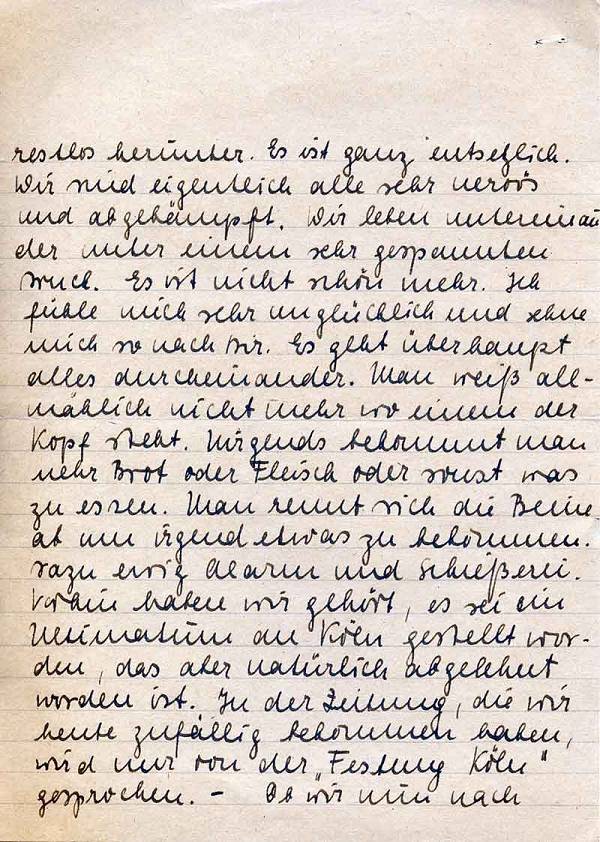 restlos herunter. Es ist ganz entsetzlich.
Wir sind eigentlich alle sehr nervös
und abgekämpft. Wir leben untereinan
der unter einem sehr gespannten
Druck. Es ist nicht schön mehr. Ich
fühle mich sehr unglücklich und sehne
mich so nach Dir. Es geht überhaupt
alles durcheinander. Man weiß all-
mählich nicht mehr wo einem der
Kopf steht. Nirgends bekommt man
mehr Brot oder Fleisch oder sonst was
zu essen. Man rennt sich die Beine
ab um irgend etwas zu bekommen.
Dazu ewig Alarm und Schießerei.
Vorhin haben wir gehört, es sei ein
Ultimatum an Köln gestellt wor-
den, das aber natürlich abgelehnt
worden ist. In der Zeitung, die wir
heute zufällig bekommen haben,
wird nur von der „Festung Köln"
gesprochen. – Ob wir nun nach